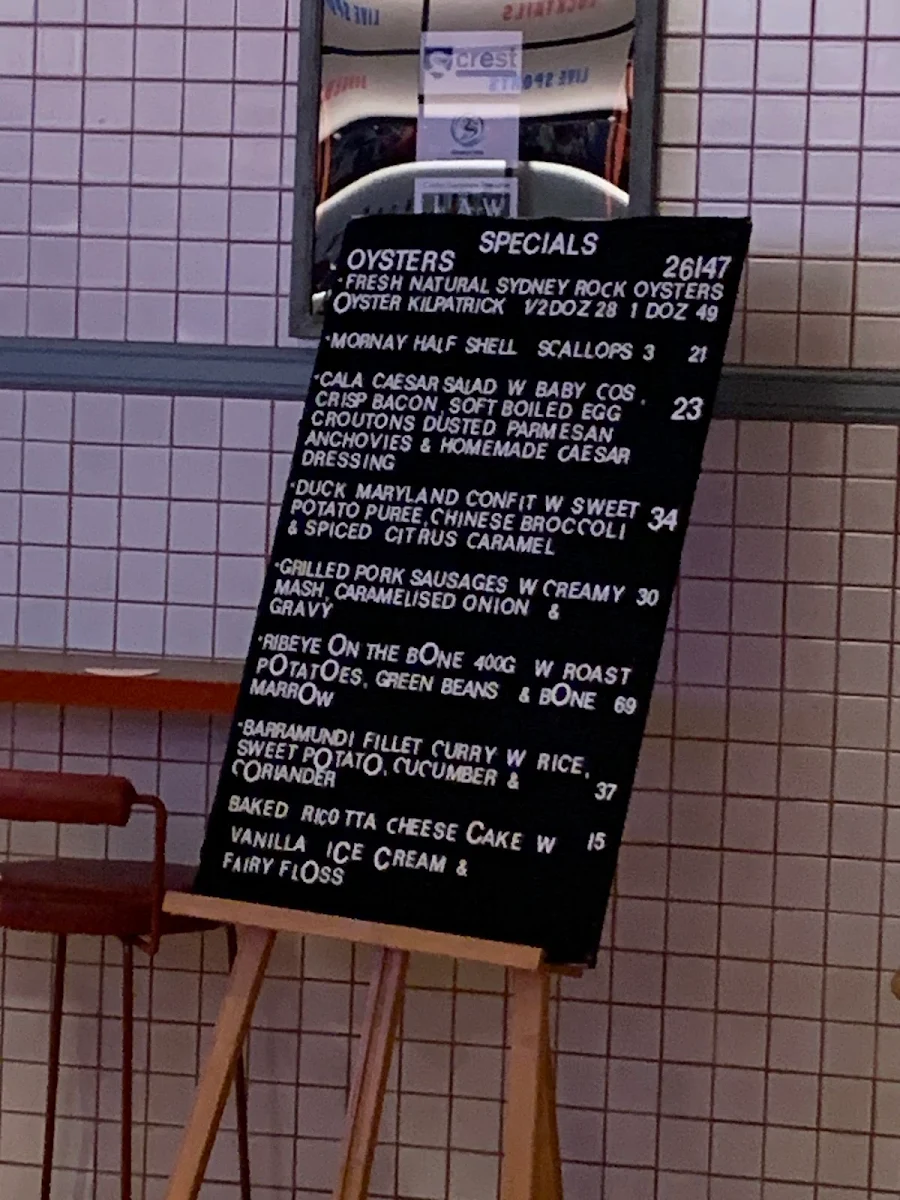 crest
SPECIALS
OYSTERS 26|47
·FRESH NATURAL SYDNEY ROCK OYSTERS
OYSTER KILPATRICK 1/2DOZ 28 1 DOZ 49
·MORNAY HALF SHELL SCALLOPS 3 21
·CALA CAESAR SALAD W BABY COS,
CRISP BACON, SOFT BOILED EGG 23
CROUTONS DUSTED PARMESAN
ANCHOVIES & HOMEMADE CAESAR
DRESSING
·DUCK MARYLAND CONFIT W SWEET 34
POTATO PUREE, CHINESE BROCCOLI
& SPICED CITRUS CARAMEL
·GRILLED PORK SAUSAGES W CREAMY 30
MASH, CARAMELISED ONION &
GRAVY
·RIBEYE ON THE BONE 400G W ROAST
POTATOES, GREEN BEANS & BONE 69
MARROW
·BARRAMUNDI FILLET CURRY W RICE,
SWEET POTATO, CUCUMBER & 37
CORIANDER
BAKED RICOTTA CHEESE CAKE W 15
VANILLA ICE CREAM &
FAIRY FLOSS